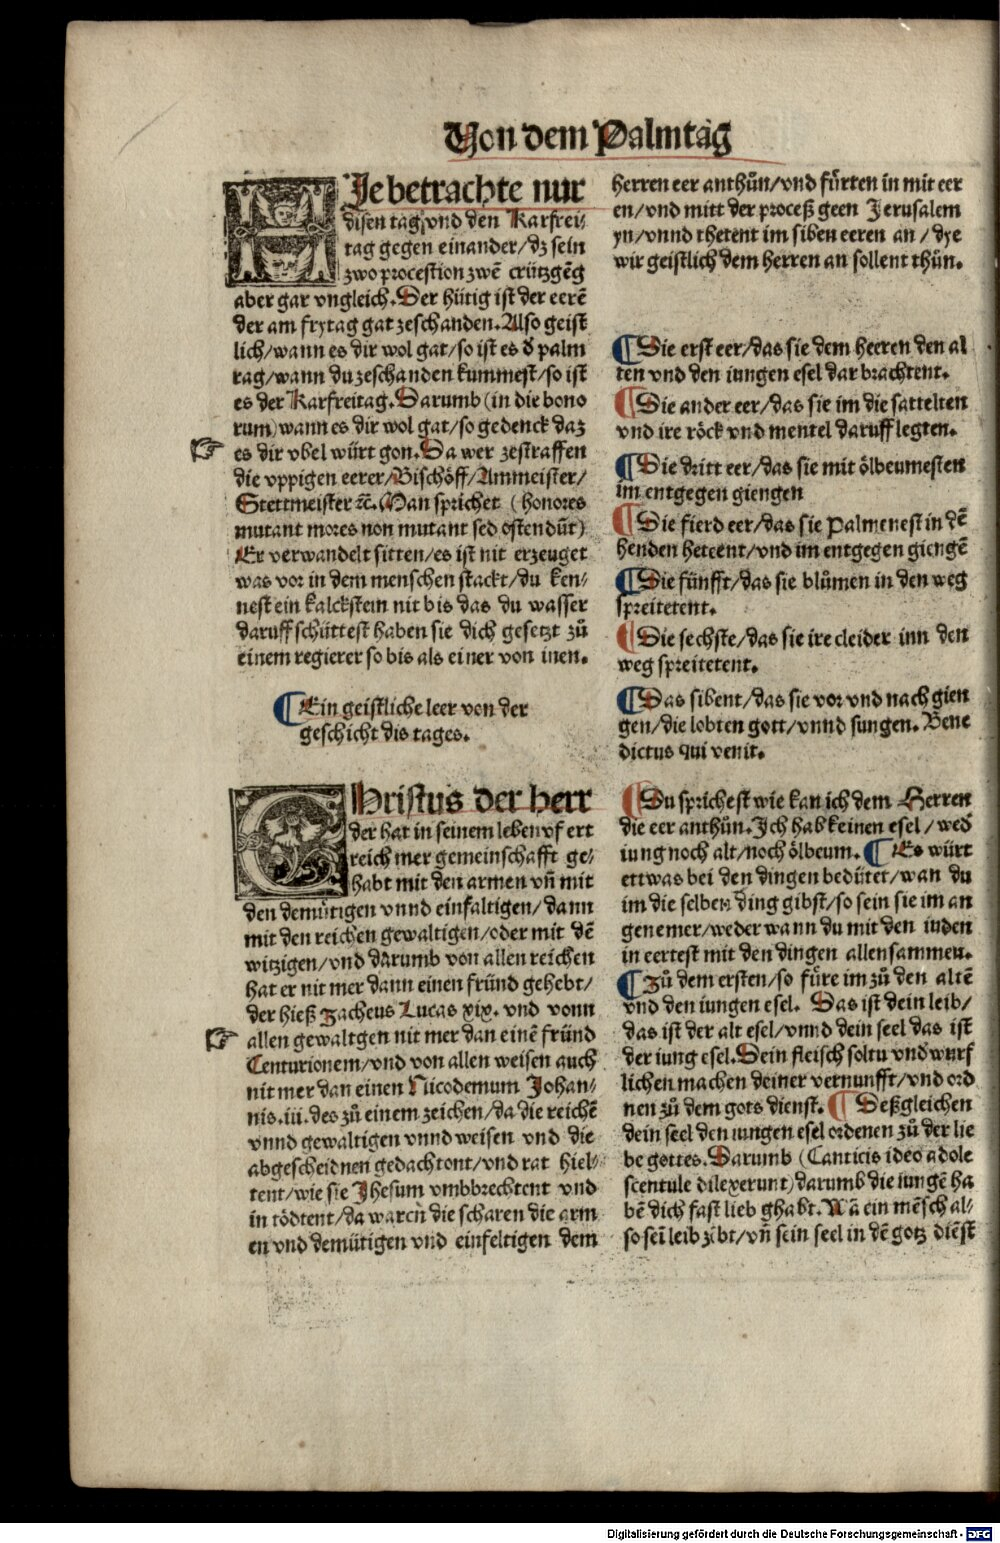 Von dem Palmtag
HIe betrachte nur
disen tag/vnd den Karfrei-
tag gegen einander/dz sein
zwo procession zwē crützgēg
aber gar vngleich. Der hütig ist der eerē
der am frytag gat zeschanden. Also geist
lich/wann es dir wol gat/so ist es d̄ palm
tag/wann du zeschanden kummest/so ist
es der Karfreitag. Darumb (in die bono
rum) wann es dir wol gat/so gedenck daz
es dir vbel würt gon. Da wer zestraffen
die vppigen eerer/Bischöff/Ammeister/
Stettmeister ⁊c. Man sprichet (honores
mutant mores non mutant sed ostendūt)
Er verwandelt sitten/es ist nit erzeuget
was vor in dem menschen stackt/du ken-
nest ein kalckstein nit bis das du wasser
daruff schüttest haben sie dich gesetzt zů
einem regierer so bis als einer von inen.
¶ Ein geistliche leer von der
geschicht dis tages.
CHristus der herr
der hat in seinem leben vf ert
reich mer gemeinschafft ge-
habt mit den armen vñ mit
den demütigen vnnd einfaltigen/dann
mit den reichen gewaltigen/oder mit dē
witzigen/vnd darumb von allen reichen
hat er nit mer dann einen fründ gehebt/
der hieß Zacheus Lucas xix. vnd vonn
allen gewaltgen nit mer dan einē fründ
Centurionem/vnd von allen weisen auch
nit mer dan einen Nicodemum Johan-
nis.iii. des zů einem zeichen/da die reichē
vnnd gewaltigen vnnd weisen vnd die
abgescheidnen gedachtont/vnd rat hiel-
tent/wie sie Jhesum vmbbrechtent vnd
in tödtent/da waren die scharen die arm
en vnd demütigen vnd einfeltigen dem
herren eer anthůn/vnd fürten in mit eer
en/vnd mitt der proceß geen Jerusalem
yn/vnnd thetent im siben eeren an/dye
wir geistlich dem herren an sollent thůn.
¶ Die erst eer/das sie dem heeren den al
ten vnd den iungen esel dar brachtent.
¶ Die ander eer/das sie im die sattelten
vnd ire röck vnd mentel daruff legten.
¶ Die dritt eer/das sie mit ölbeumesten
im entgegen giengen
¶ Die fierd eer/das sie Palmenest in dē
henden hetent/vnd im entgegen giengē
¶ Die fünfft/das sie blůmen in den weg
spreitetent.
¶ Die sechste/das sie ire cleider inn den
weg spreitetent.
¶ Das sibent/das sie vor vnd nach gien
gen/die lobten gott/vnnd sungen. Bene
dictus qui venit.
¶ Du sprichest wie kan ich dem Herren
die eer anthůn. Ich hab keinen esel/wed̄
iung noch alt/noch ölbeum. ¶ Es würt
ettwas bei den dingen bedütet/wan du
im die selben ding gibst/so sein sie im an
genemer/weder wann du mit den iuden
in eertest mit den dingen allensammen.
¶ Zů dem ersten/so füre im zů den altē
vnd den iungen esel. Das ist dein leib/
das ist der alt esel/vnnd dein seel das ist
der iung esel. Dein fleisch soltu vndwurf
lichen machen deiner vernunfft/vnd ord
nen zů dem gots dienst. ¶ Deßgleichen
dein seel den iungen esel ordenen zů der lie
be gottes. Darumb (Canticis ideo adole
scentule dilexerunt) darumb die iungē ha
bē dich fast lieb ghabt. Wā ein mēsch al-
so sei leib zibt/vñ sein seel in dē gotz diēst
Digitalisierung gefördert durch die Deutsche Forschungsgemeinschaft - DFG